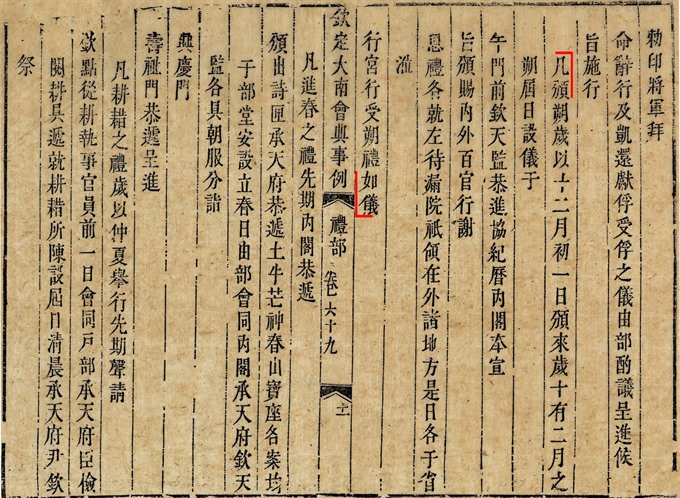 勅印將軍拜
命辭行及凱還獻俘受俘之儀由部酌議呈進候
旨施行
凡頒朔歲以十二月初一日頒來歲十有二月之
朔屆日設儀于
午門前欽天監恭進協紀曆內閣奉宣
旨頒賜內外百官行謝
恩禮各就左待漏院祇領在外諸地方是日各于省
涖
行宮行受朔禮如儀
欽定大南會典事例 禮部 卷 六十九 十二
凡進春之禮先期內閣恭遞
頒出詩匣承天府恭遞土牛芒神春山寶座各案均
于部堂安設立春日由部會同內閣承天府欽天
監各具朝服分詣
興慶門
壽祉門恭遞呈進
凡耕耤之禮歲以仲夏舉行先期聲請
欽點從耕執事官員前一日會同戶部承天府臣儉
閱耕具遞就耕耤所陳設屆日清晨承天府尹欽
祭